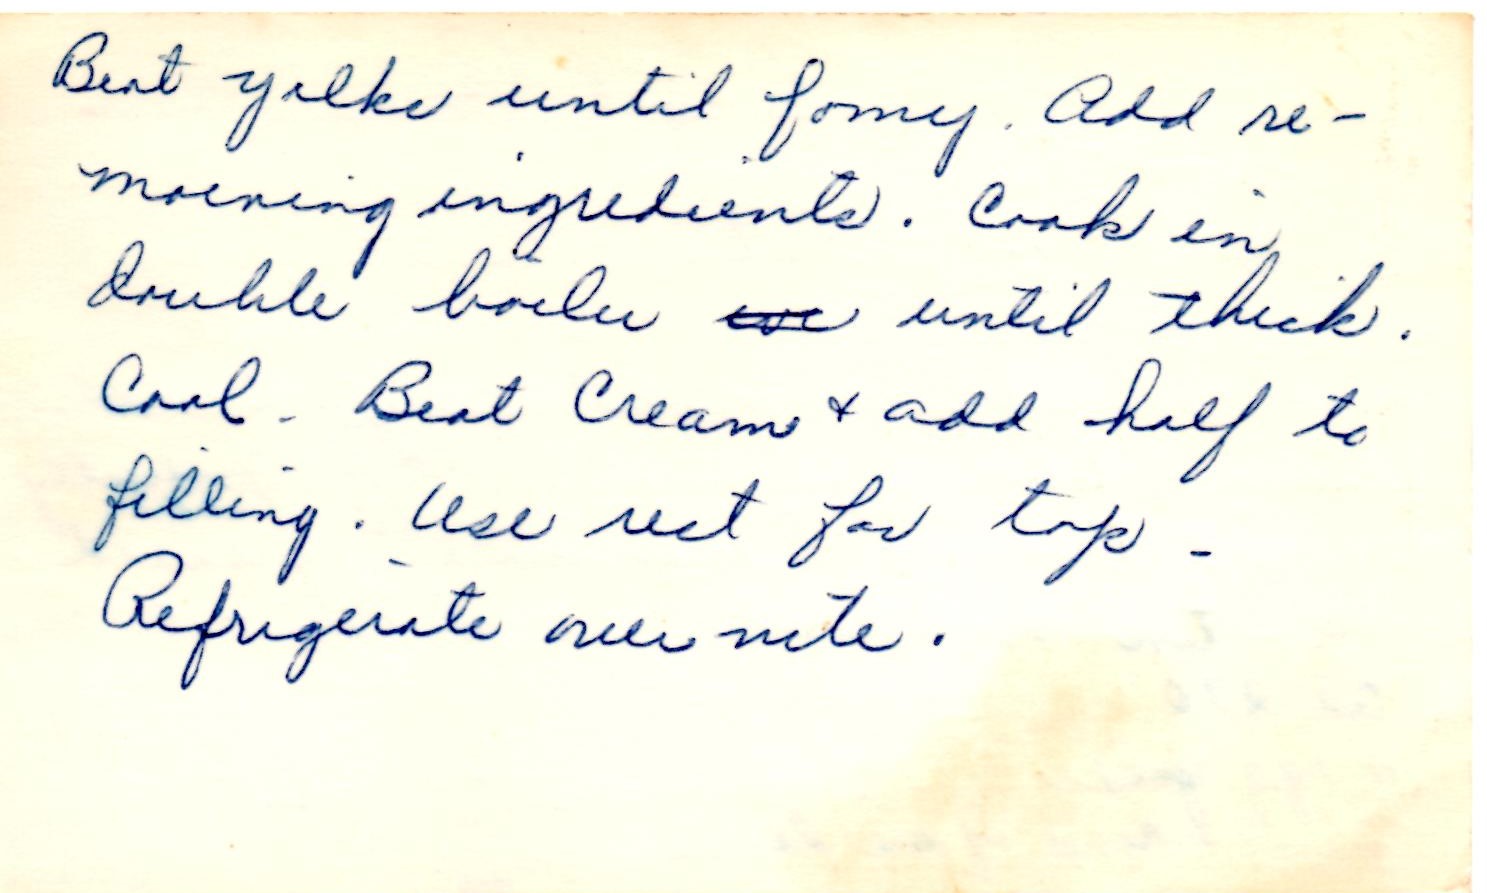 Beat yolks until fomey. Add re-
maining ingredients. Cook in
double boiler until thick.
Cool. Beat Cream + add half to
filling. Use rest for top.
Refrigerate over nite.